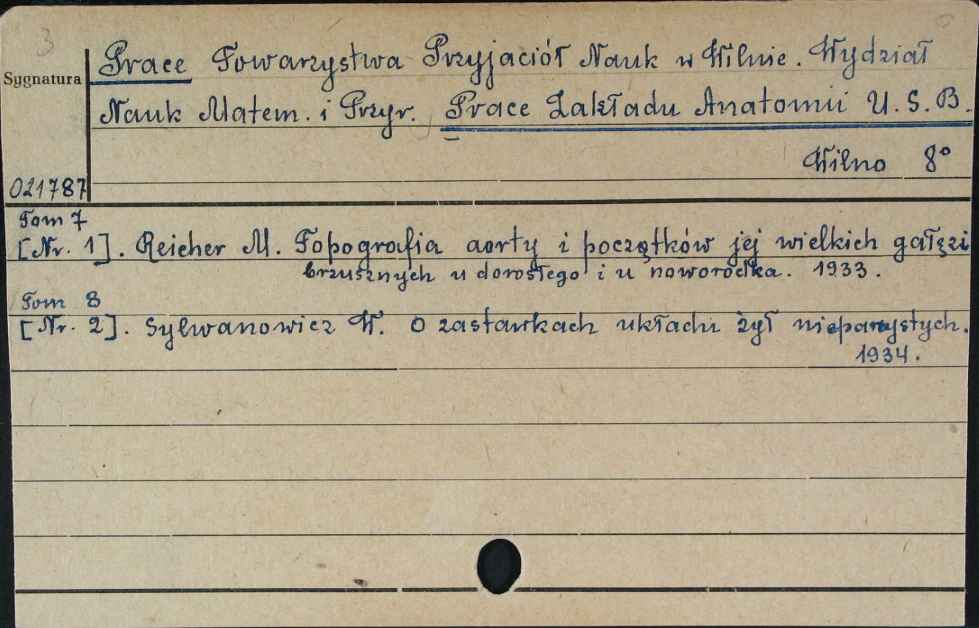 3
Prace Towarzystwa Przyjaciół Nauk w Wilnie. Wydział
Sygnatura
Nauk Matem. i Przyr. Prace Zakładu Anatomii U.S.B.
Wilno 8°
021787
Tom 7
[Nr. 1]. Reicher M. Topografia aorty i początków jej wielkich gałęzi
brzusznych u dorosłego i u noworodka. 1933.
Tom 8
[Nr. 2]. Sylwanowicz W. O zastawkach układu żył nieparzystych.
1934.